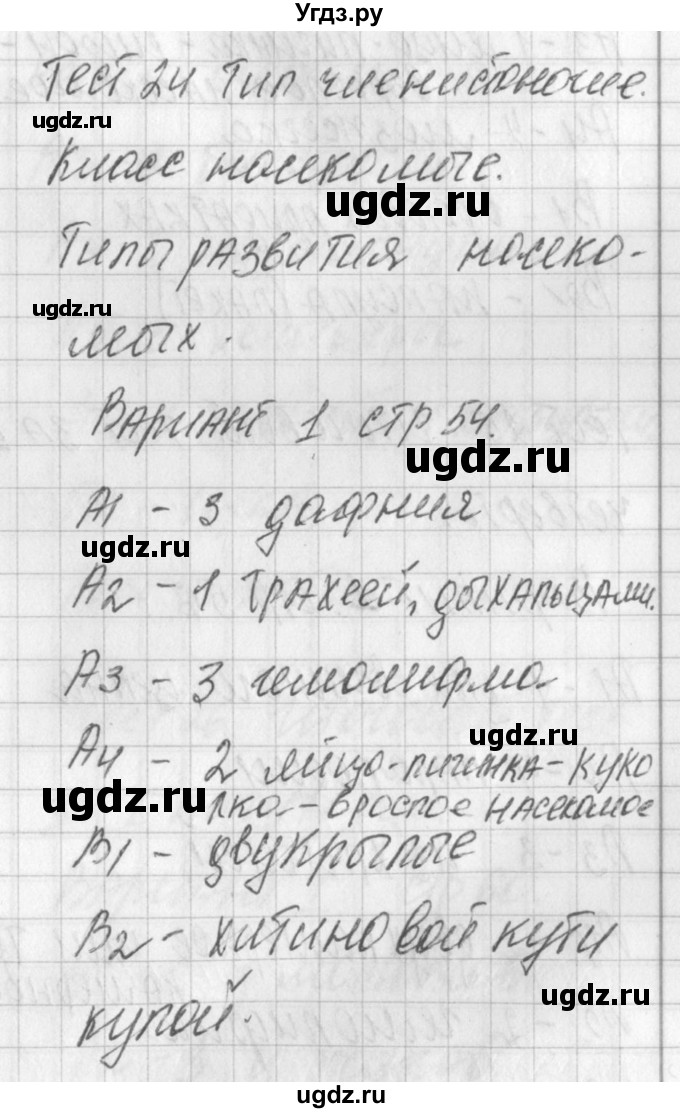 Угдз.ру
Тест 24 Тип членистоногие.
ugdz.ru
Класс насекомые.
ugdz.ru
Типы развития насеко-
ugdz.ru
мых.
Вариант 1 стр 54.
ugdz.ru
А1 - 3 дафния
ugdz.ru
А2 - 1 трахеей, дыхальцами.
А3 - 3 гемолимфа
ugdz.ru
А4 - 2 яйцо-личинка-куко
ugdz.ru
лка-врослое насекомое
В1 - двукрылые
В2 - хитиновой кути
ugdz.ru
кулой.
ugdz.ru